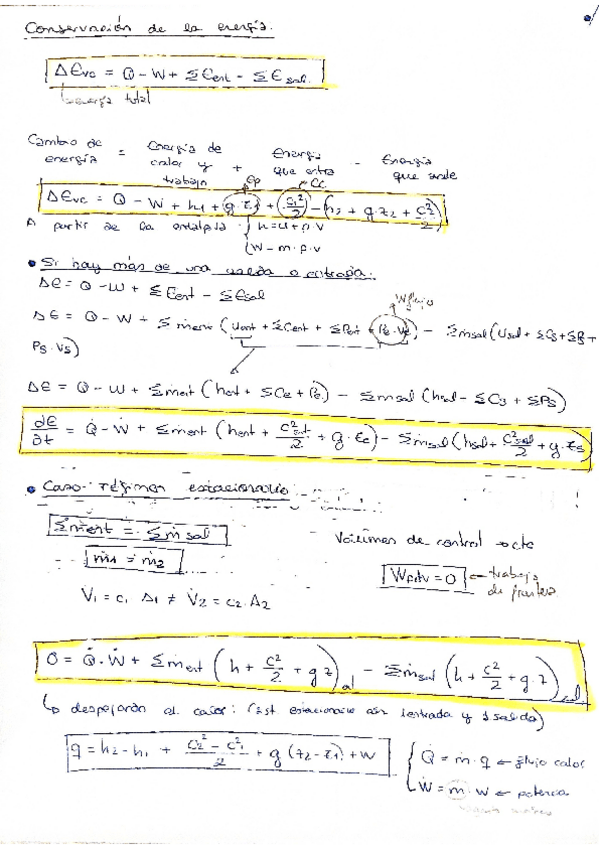 Conservación de la energía.
ΔEvc = Q - W + ΣEent - ΣEsal.
energía total
Cambio de energía = Energía de calor y trabajo + Energía que entra - Energía que sale
Ep Ec
ΔEvc = Q - W + h1 + g·z1 + (c1²/2) - (h2 + g·z2 + c2²/2)
A partir de la entalpía: { h = u + p·v
{ W = m·p·v
• Si hay más de una salida o entrada:
ΔE = Q - W + ΣEent - ΣEsal
W flujo
ΔE = Q - W + Σ ment (uent + ΣCent + ΣPent + Pe·Ve) - Σmsal (usal + ΣCs + ΣPs +
Ps·Vs)
ΔE = Q - W + Σment (hent + ΣCe + Pe) - Σmsal (hsal - ΣCs + ΣPs)
dE/dt = Q̇ - Ẇ + Σṁent (hent + c²ent/2 + g·ze) - Σṁsal (hsal + c²sal/2 + g·zs)
• Caso: régimen estacionario:
Σṁent = Σṁsal
ṁ1 = ṁ2
Volúmenes de control → cte
Wfntv = 0 ← trabajo de frontera
V̇1 = c1 A1 ≠ V̇2 = c2·A2
0 = Q̇ - Ẇ + Σṁent (h + c²/2 + g z)al - Σṁsal (h + c²/2 + g·z)sal.
↳ despejando el calor: (Est estacionario con 1 entrada y 1 salida)
q = h2 - h1 + (c2² - c1²)/2 + g (z2 - z1) + w
{ Q̇ = ṁ·q ← flujo calor
{ Ẇ = ṁ·w ← potencia